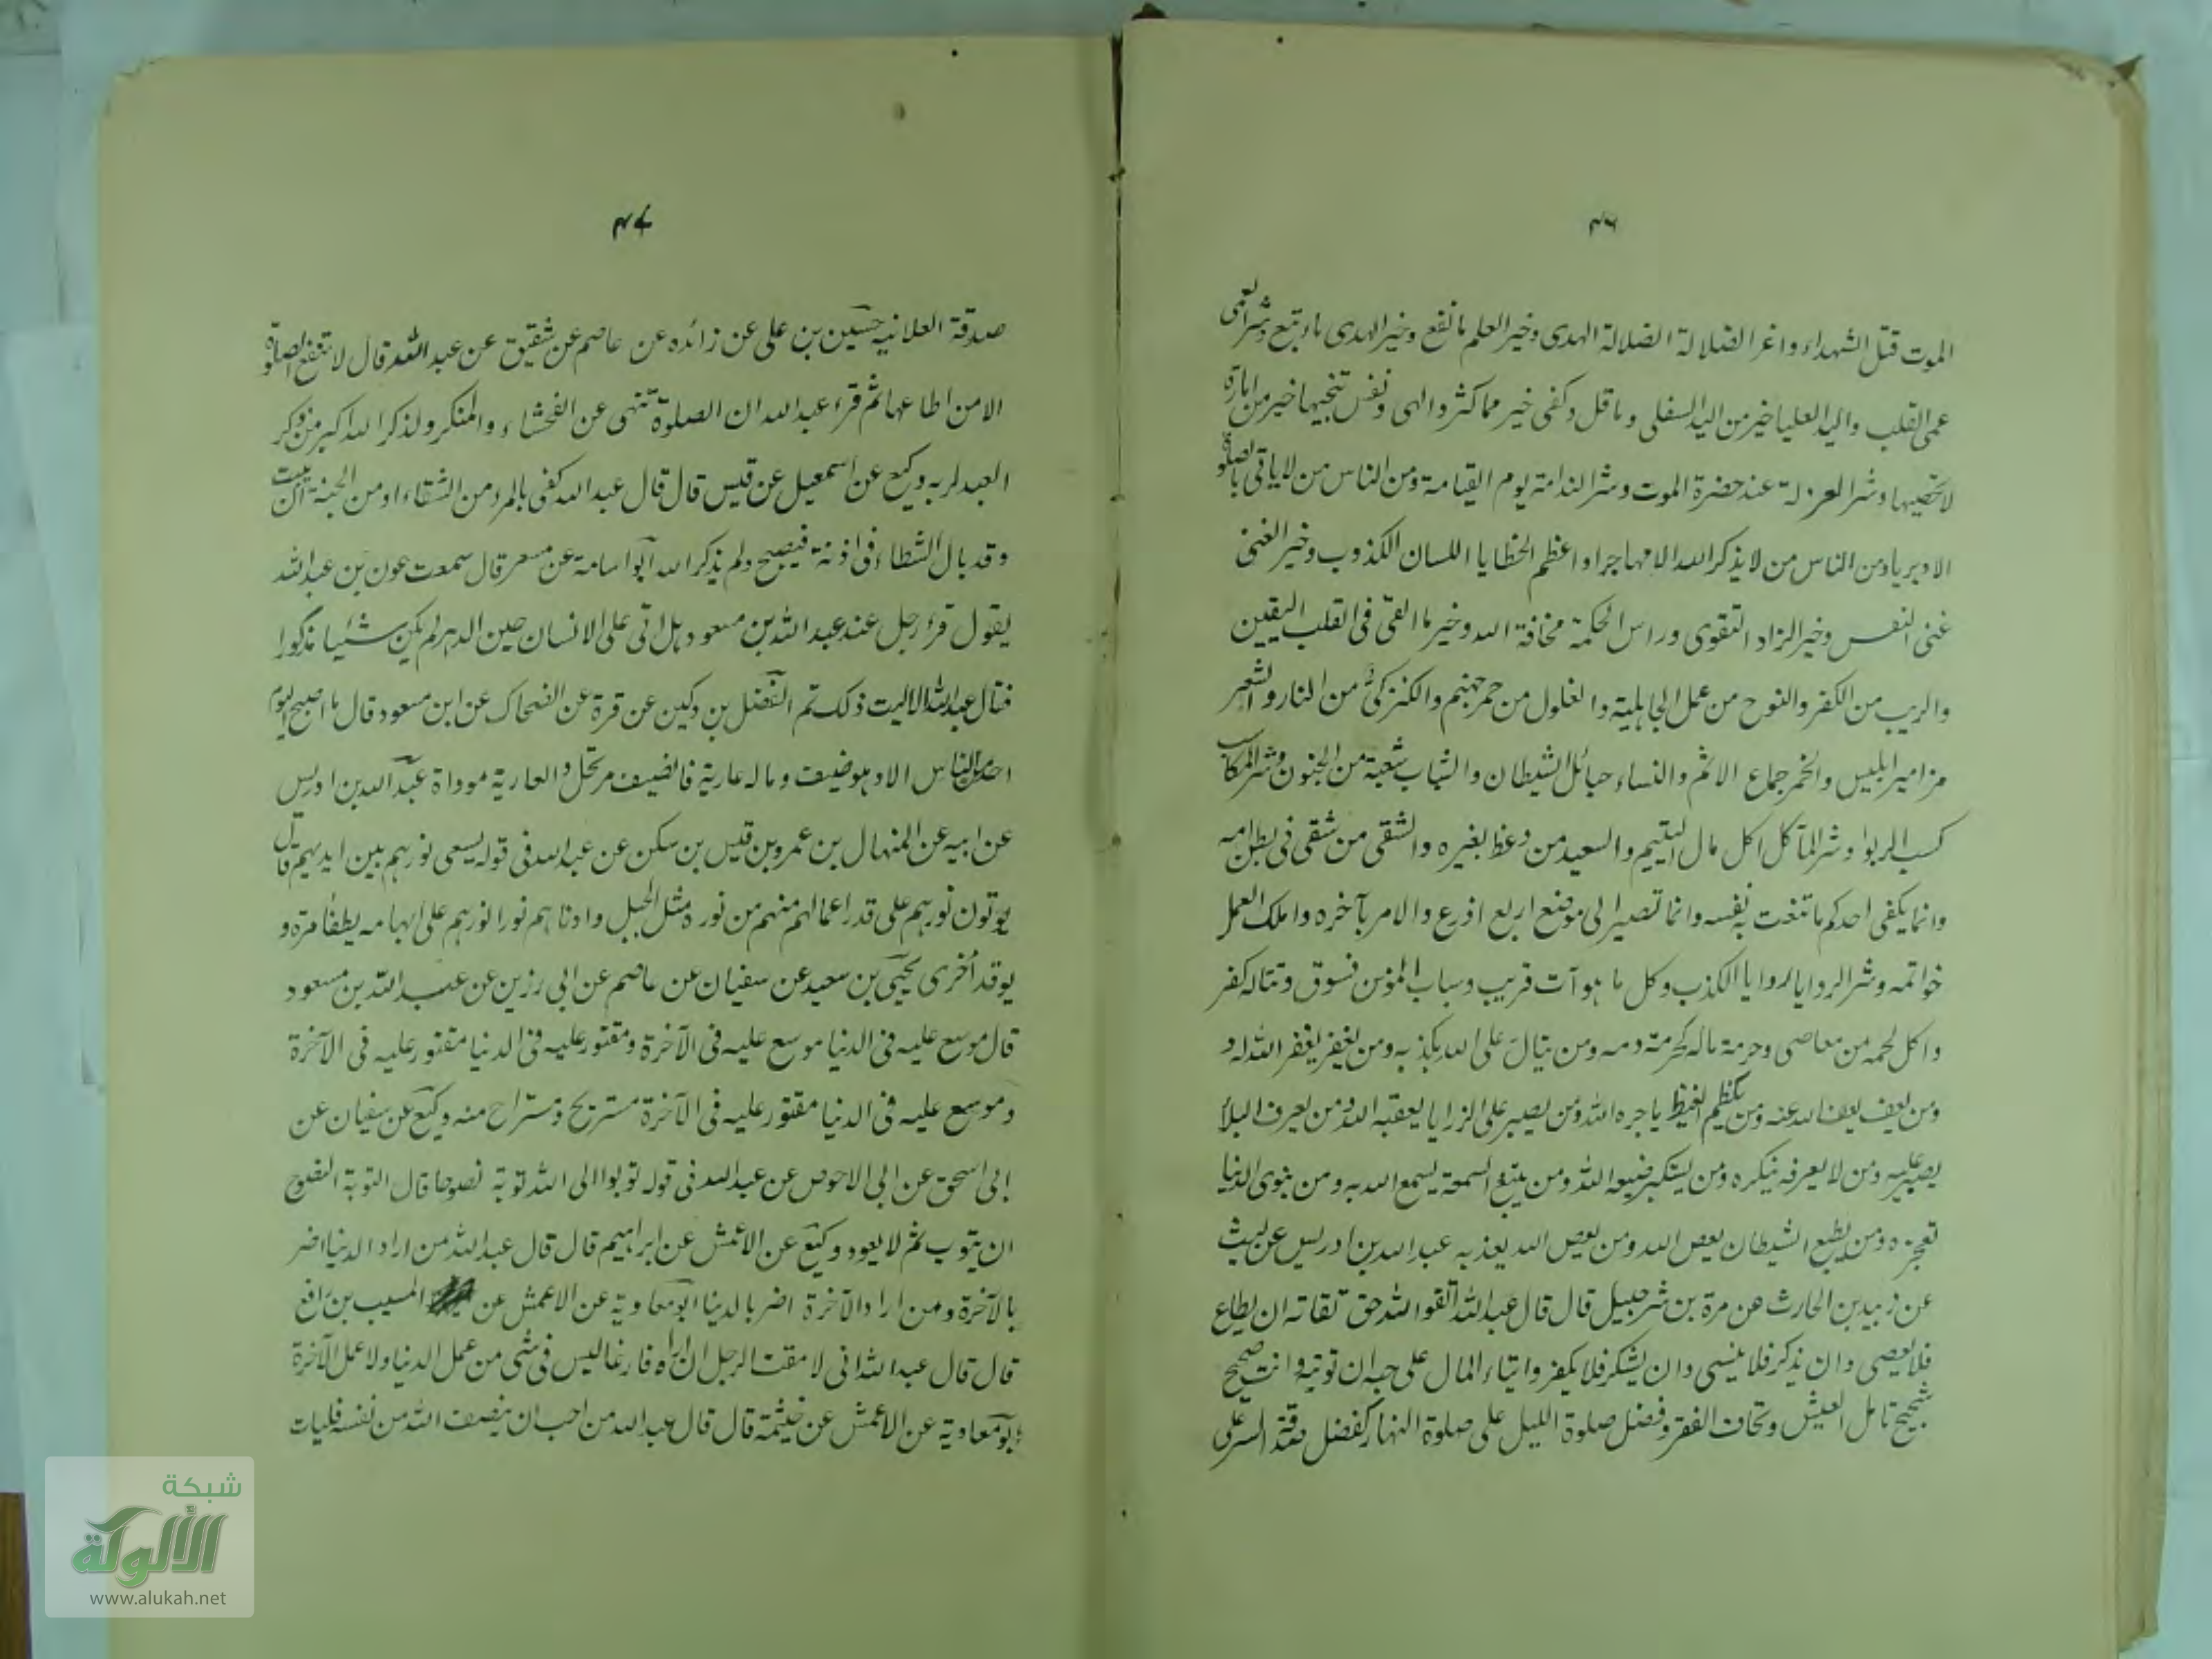 ٤٦
الموت قتل الشهداء واغر الضلالة الضلالة الهدى وخير العلم ما نفع وخير الهدى ما اتبع وشر العمى
عمى القلب واليد العليا خير من اليد السفلى وما قل وكفى خير مما كثر والهى ونفس تنجيها خير من امارة
لا تحصيها وشر العزلة عند حضرة الموت وشر الندامة يوم القيامة ومن الناس من لا ياتى الصلوة
الا دبريا ومن الناس من لا يذكر الله الا مهاجرا واعظم الخطايا اللسان الكذوب وخير الغنى
غنى النفس وخير الزاد التقوى وراس الحكمة مخافة الله وخير ما القى فى القلب اليقين
والريب من الكفر والنوح من عمل الجاهلية والغلول من جمر جهنم والكنز كى من النار والشعر
مزامير ابليس والخمر جماع الاثم والنساء حبائل الشيطان والشباب شعبة من الجنون وشر المكاسب
كسب الربوا وشر المآكل اكل مال اليتيم والسعيد من وعظ بغيره والشقى من شقى فى بطن امه
وانما يكفى احدكم ما قنعت به نفسه وانما تصير الى موضع اربع اذرع والامر بآخره واملك العمل
خواتمه وشر الروايا الروايا الكذب وكل ما هو آت قريب وسباب المؤمن فسوق وقتاله كفر
واكل لحمه من معاصى وحرمة ماله كحرمة دمه ومن يتال على الله يكذبه ومن يغفر يغفر الله له و
ومن يعف يعف الله عنه ومن يكظم الغيظ ياجره الله ومن يصبر على الرزايا يعقبه الله ومن يعرف البلأ
يصبر عليه ومن لا يعرفه ينكره ومن يستكبر يضعه الله ومن يتبع السمعة يسمع الله به ومن ينوى الدنيا
تعجزه ومن يطع الشيطان يعص الله ومن يعص الله يعذبه عبد الله بن ادريس عن ليث
عن زبيد بن الحارث عن مرة بن شرحبيل قال قال عبد الله اتقوا الله حق تقاته ان يطاع
فلا يعصى وان يذكر فلا ينسى وان يشكر فلا يكفر وايتاء المال على حبه ان توتيه وانت صحيح
شحيح تامل العيش وتخاف الفقر وفضل صلوة الليل على صلوة النهار كفضل صدقة السر على
٤٧
صدقة العلانيه حسين بن على عن زائده عن عاصم عن شقيق عن عبد الله قال لا تنفع الصلوة
الا من اطاعها ثم قرء عبد الله ان الصلوة تنهى عن الفحشاء والمنكر ولذكر الله اكبر من ذكر
العبد لربه وكيع عن اسمعيل عن قيس قال قال عبد الله كفى بالمرء من الشقاء او من الخيبة ان يبيت
وقد بال الشيطان فى اذنه فيصبح ولم يذكر الله ابو اسامة عن مسعر قال سمعت عون بن عبد الله
يقول قرء رجل عند عبد الله بن مسعود هل اتى على الانسان حين الدهر لم يكن شيئا مذكورا
فقال عبد الله الا ليت ذلك تم الفضل بن دكين عن قرة عن الضحاك عن ابن مسعود قال ما اصبح اليوم
احد من الناس الا وهو ضيف وماله عارية فالضيف مرتحل والعارية موداة عبد الله بن ادريس
عن ابيه عن المنهال بن عمرو بن قيس بن سكن عن عبد الله فى قوله يسعى نورهم بين ايديهم قال
يوتون نورهم على قدر اعمالهم منهم من نوره مثل الجبل وادناهم نورا نورهم على ابهامه يطفأ مرة و
يوقد أخرى يحيى بن سعيد عن سفيان عن عاصم عن ابى رزين عن عبد الله بن مسعود
قال موسع عليه فى الدنيا موسع عليه فى الآخرة ومقتور عليه فى الدنيا مقتور عليه فى الآخرة
وموسع عليه فى الدنيا مقتور عليه فى الآخرة مستريح ومستراح منه وكيع عن سفيان عن
ابى اسحق عن ابى الاحوص عن عبد الله فى قوله توبوا الى الله توبة نصوحا قال التوبة النصوح
ان يتوب ثم لا يعود وكيع عن الاعمش عن ابراهيم قال قال عبد الله من اراد الدنيا اضر
بالآخرة ومن اراد الآخرة اضر بالدنيا ابو معاوية عن الاعمش عن المسيب بن رافع
قال قال عبد الله انى لا مقت الرجل ان اراه فارغا ليس فى شى من عمل الدنيا ولا عمل الآخرة
ابو معاوية عن الاعمش عن خيثمة قال قال عبد الله من احب ان ينصف الله من نفسه فليات
شبكة
الألوكة
www.alukah.net